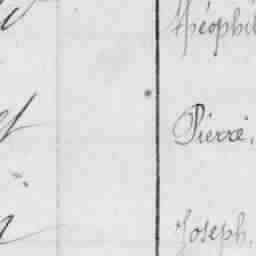 Théophil
Pierre,
Joseph,